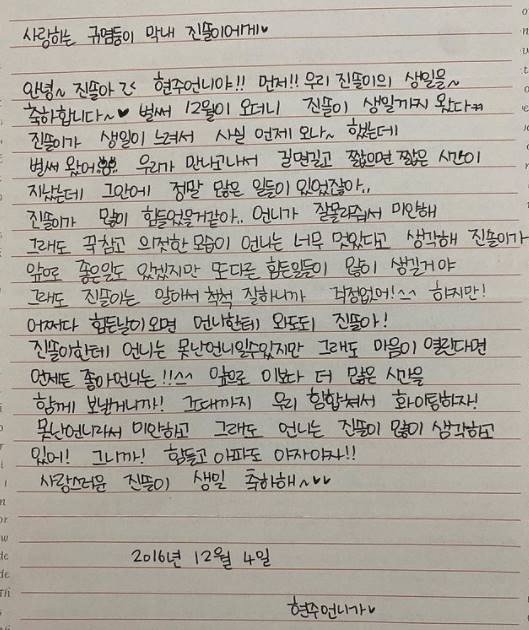 사랑하는 귀염둥이 막내 진뚤이에게♥
안녕~ 진뚤아 현주언니야!! 먼저!! 우리 진뚤이의 생일을~
축하합니다~♥ 벌써 12월이 오더니 진뚤이 생일까지 왔다
진뚤이가 생일이 느려서 사실 언제 오나~ 했는데
벌써 왔어 우리가 만나고나서 길면길고 짧으면 짧은 시간이
지났는데 그안에 정말 많은 일들이 있었잖아..
진뚤이가 많이 힘들었을거같아.. 언니가 잘몰라줘서 미안해
그래도 꾹참고 의젓한 모습이 언니는 너무 멋있다고 생각해 진뚤이가
앞으로 좋은일도 있겠지만 또다른 힘든일들이 많이 생길거야
그래도 진뚤이는 알아서 척척 잘하니까 걱정없어!^^ 하지만!
어쩌다 힘든날이오면 언니한테 와도되 진뚤아!
진뚤이한테 언니는 못난언니일수있지만 그래도 마음이 열린다면
언제든 좋아언니는!!^^ 앞으로 이보다 더 많은 시간을
함께 보낼거니까! 그때까지 우리 힘합쳐서 화이팅하자!
못난언니라서 미안하고 그래도 언니는 진뚤이 많이 생각하고
있어! 그니까! 힘들고 아파도 야자야자!!
사랑스러운 진뚤이 생일 축하해~♥♥
2016년 12월 4일
현주언니가♥